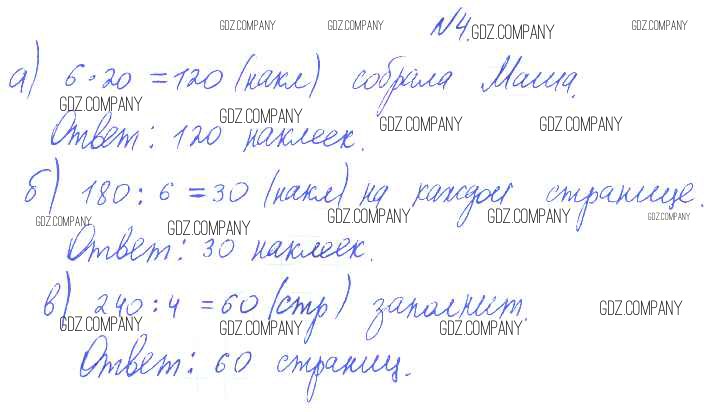 GDZ.COMPANY GDZ.COMPANY №4. GDZ.COMPANY GDZ.COMPANY
а) 6·20 = 120 (накл) собрала Маша.
GDZ.COMPANY GDZ.COMPANY GDZ.COMPANY GDZ.COMPANY
Ответ: 120 наклеек.
б) 180 : 6 = 30 (накл) на каждой странице.
GDZ.COMPANY GDZ.COMPANY GDZ.COMPANY GDZ.COMPANY GDZ.COMPANY
Ответ: 30 наклеек.
в) 240 : 4 = 60 (стр) заполнит.
GDZ.COMPANY GDZ.COMPANY GDZ.COMPANY GDZ.COMPANY
Ответ: 60 страниц.